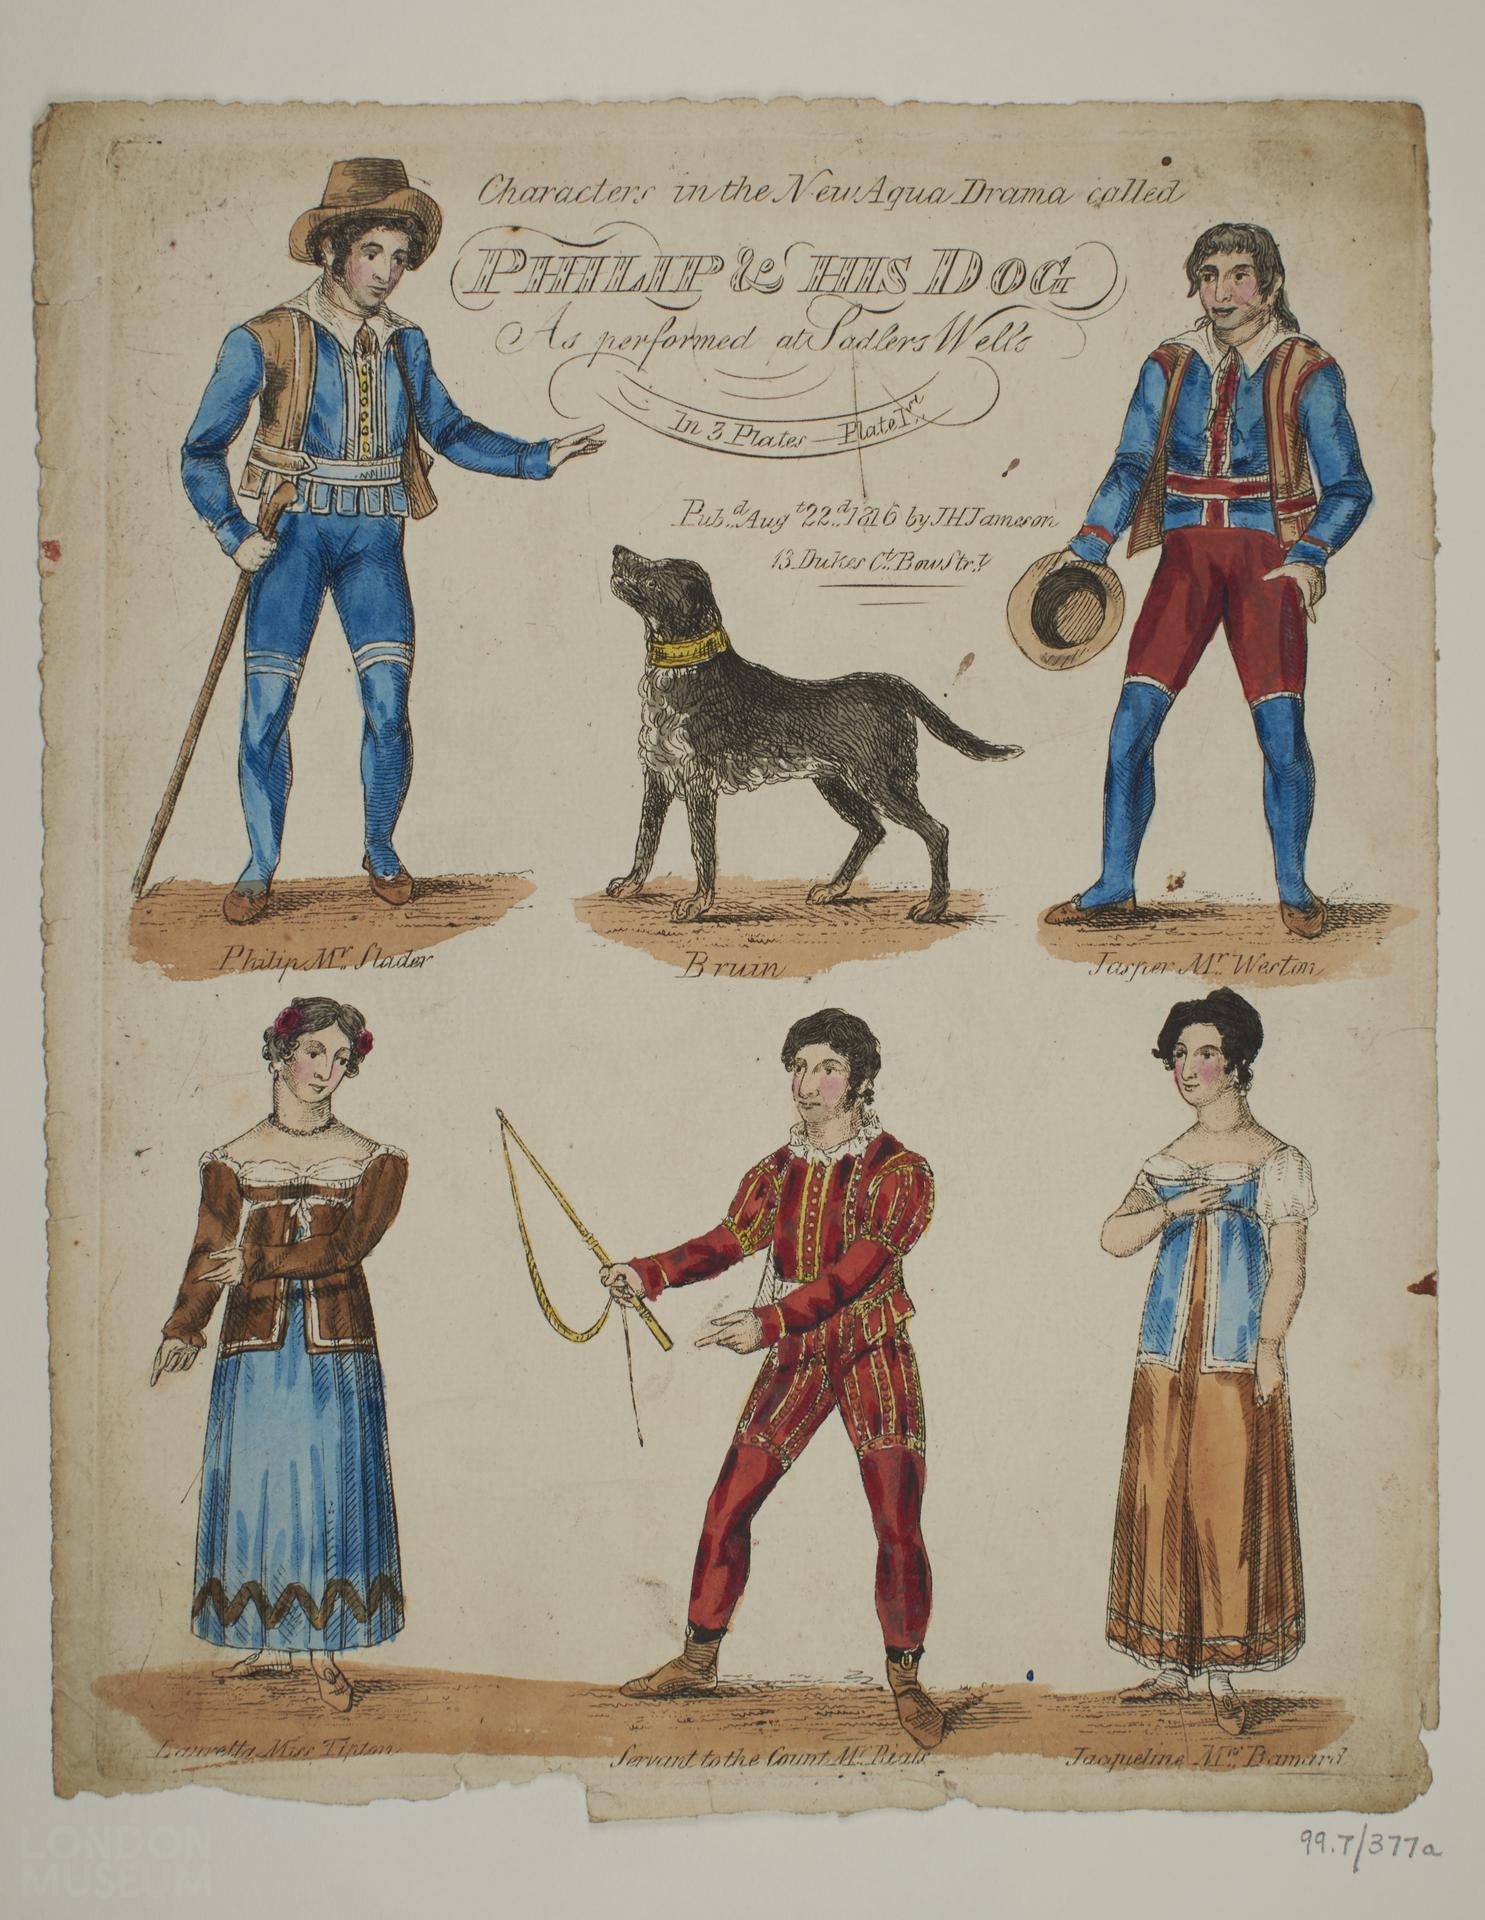 Characters in the New Aqua Drama called
PHILIP & HIS DOG
As performed at Sadlers Wells
In 3 Plates — Plate 1st
Pub.d Augt 22.d 1816 by JH Jameson
13 Dukes Ct. Bow Str.t
Philip Mr. Slader
Bruin
Jasper Mr. Weston
Lauretta Miss Tipton
Servant to the Count Mr.
Jacqueline Mrs. Barnard
99.7/377a
LONDON
MUSEUM